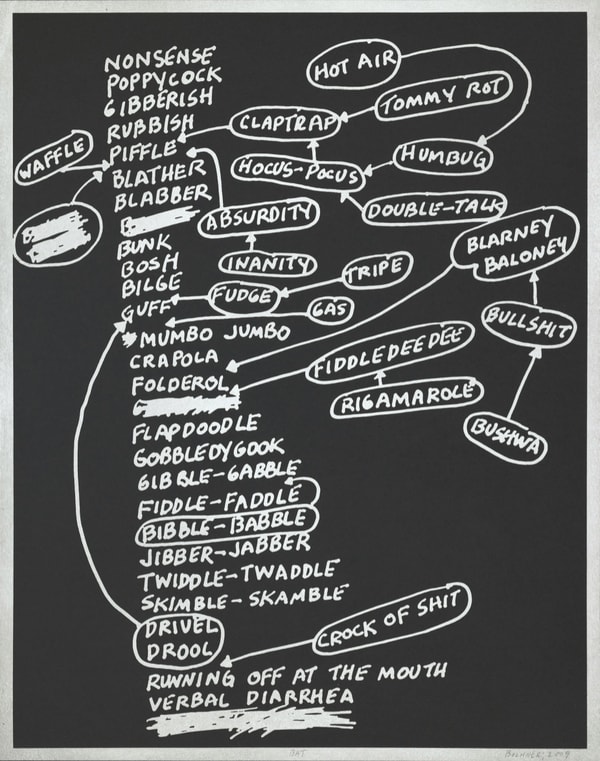 NONSENSE
POPPYCOCK
GIBBERISH
RUBBISH
PIFFLE
BLATHER
BLABBER
BUNK
BOSH
BILGE
GUFF
MUMBO JUMBO
CRAPOLA
FOLDEROL
FLAPDOODLE
GOBBLEDYGOOK
GIBBLE-GABBLE
FIDDLE-FADDLE
BIBBLE-BABBLE
JIBBER-JABBER
TWIDDLE-TWADDLE
SKIMBLE-SKAMBLE
DRIVEL
DROOL
RUNNING OFF AT THE MOUTH
VERBAL DIARRHEA
WAFFLE
HOT AIR
TOMMY ROT
CLAPTRAP
HUMBUG
HOCUS-POCUS
DOUBLE-TALK
ABSURDITY
INANITY
BLARNEY
BALONEY
TRIPE
FUDGE
GAS
BULLSHIT
FIDDLEDEEDEE
RIGAMAROLE
BUSHWA
CROCK OF SHIT
BAT
BOCHNER, 2009